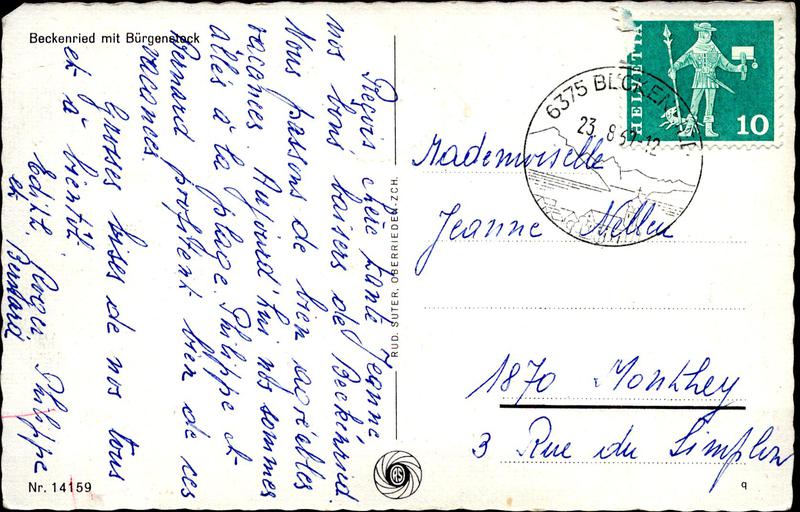 Beckenried mit Bürgenstock
Reçois chère tante Jeanne
nos bons baisers de Beckenried.
Nous passons de bien agréables
vacances. Aujourd'hui nous sommes
allés à la plage. Philippe et
Bernard profitent bien de ces
vacances.
Grosses bises de nous tous
et à bientôt
Edith, Roger Philippe
et Bernard
Nr. 14159
RUD. SUTER, OBERRIEDEN-ZCH.
HELVETIA
10
6375 BECKENRIED
23.8.67-12
Mademoiselle
Jeanne Nellen
1870 Monthey
3 Rue du Simplon
q